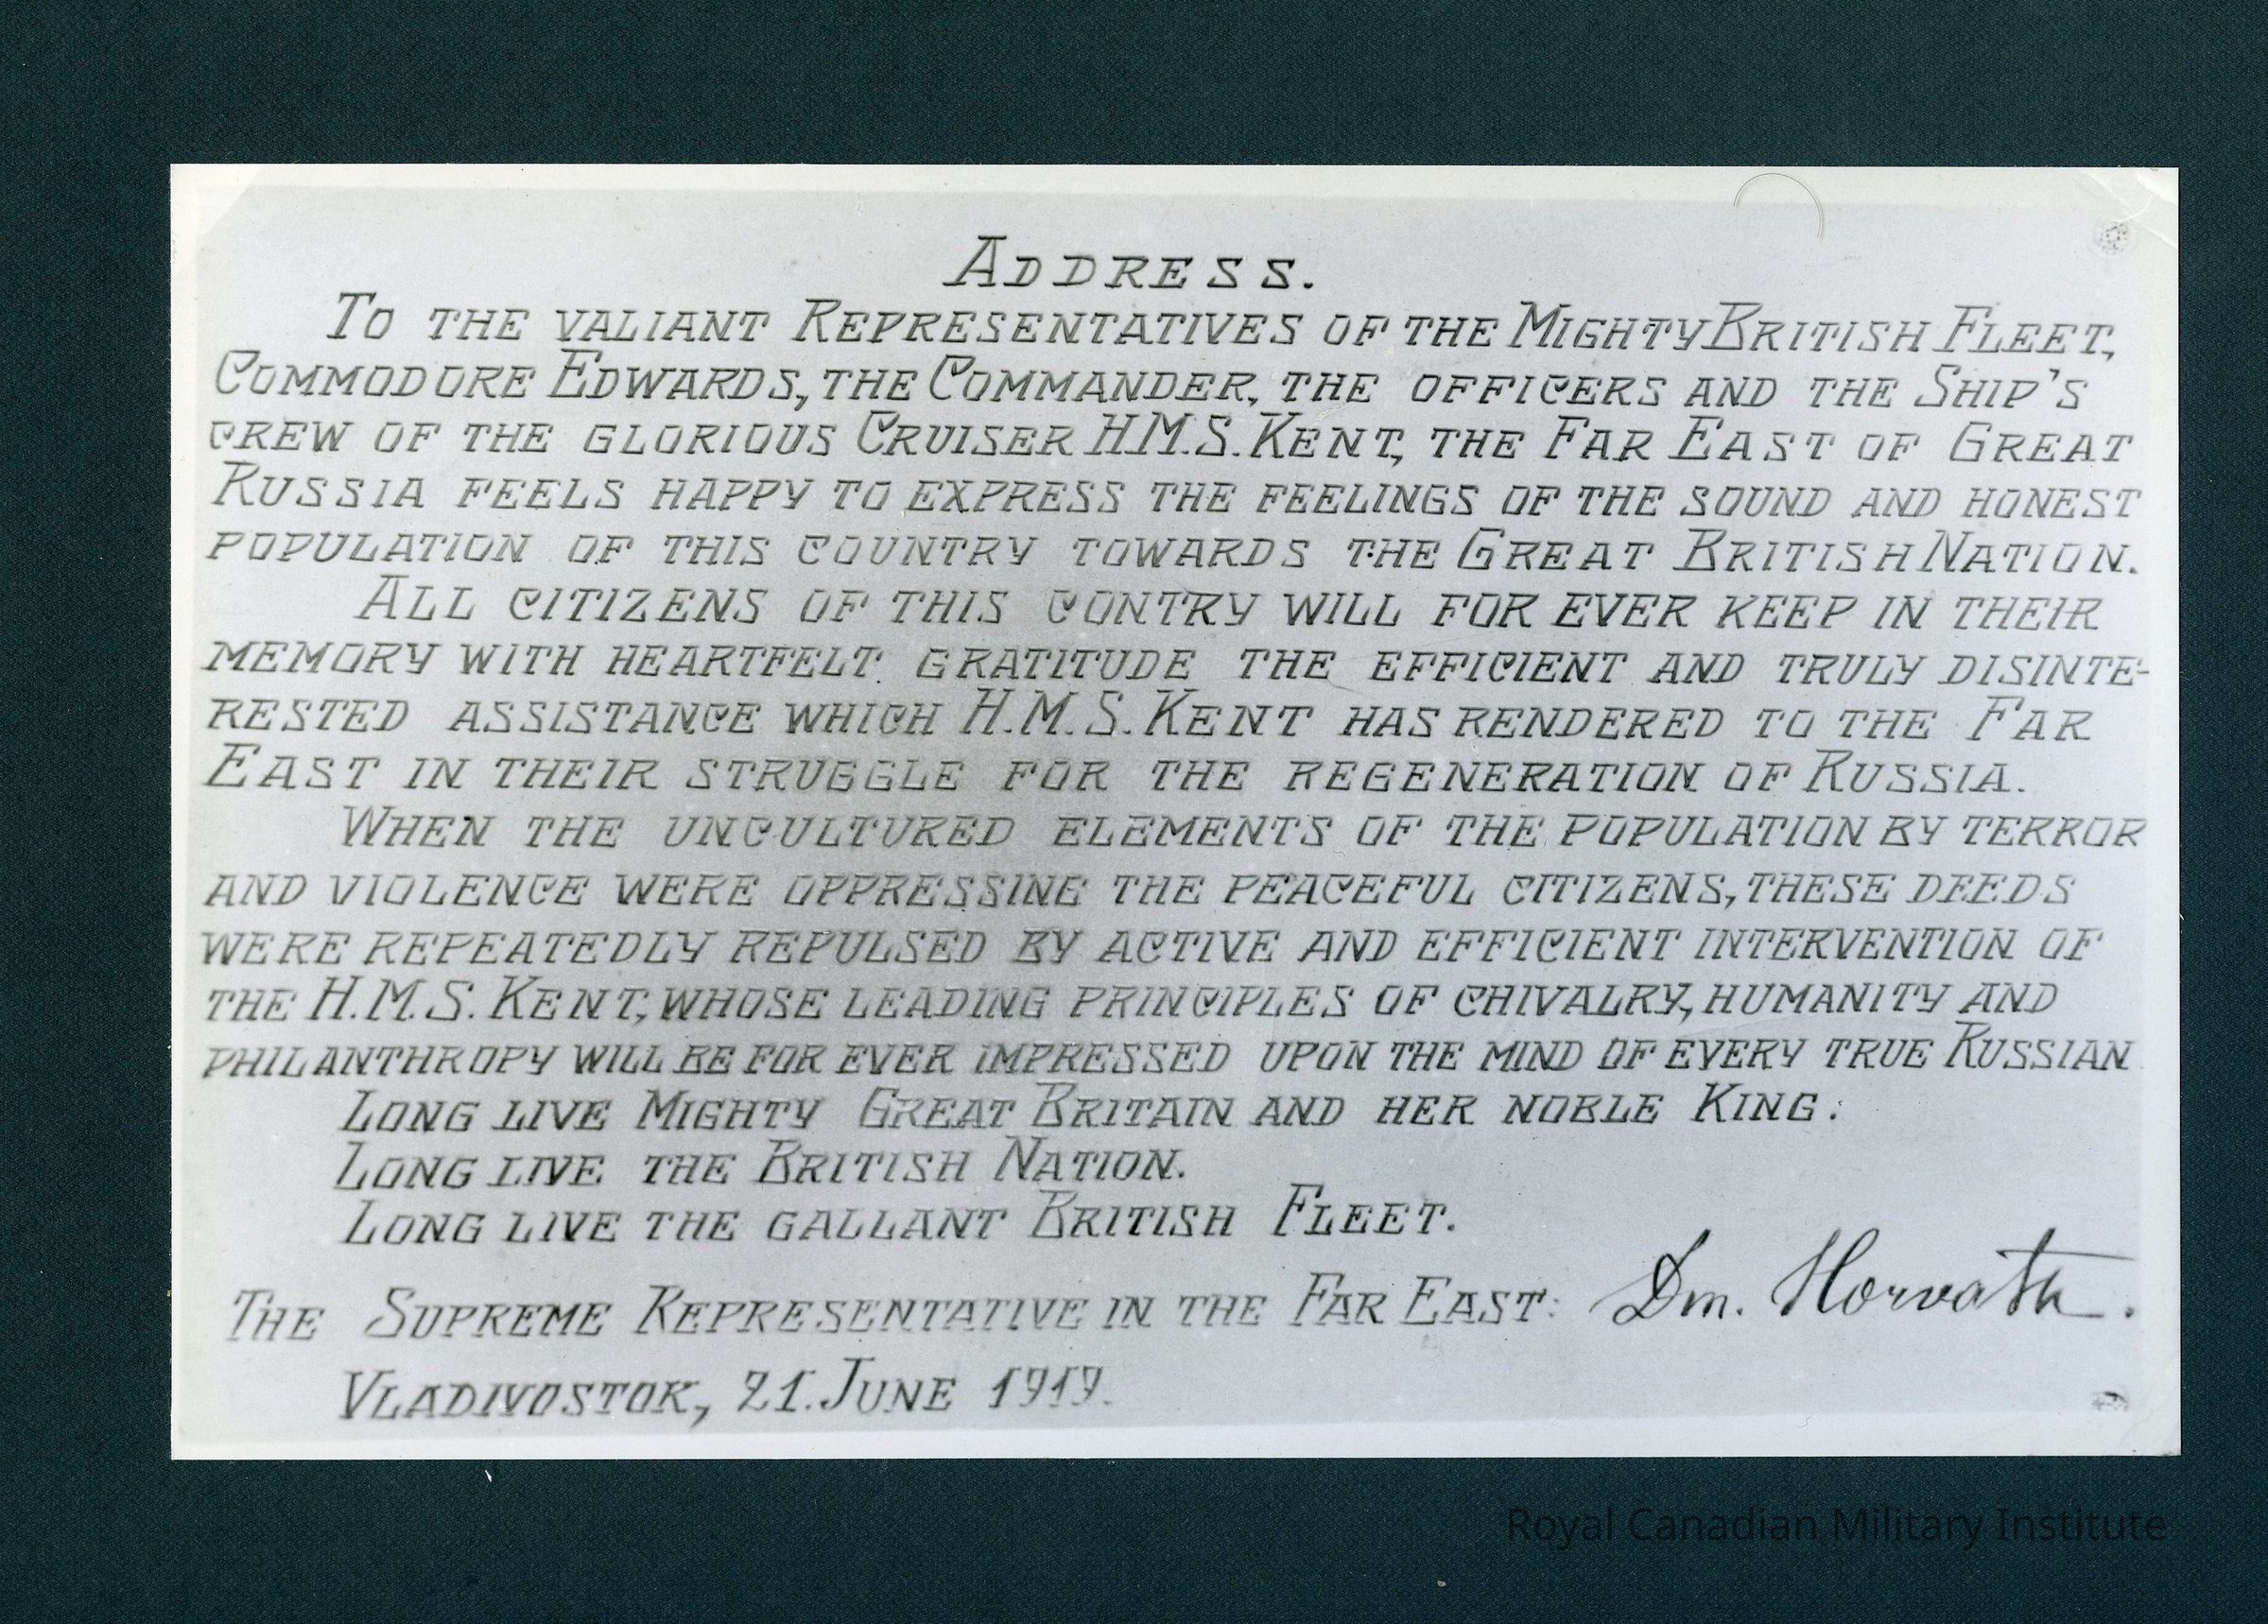 ADDRESS.
TO THE VALIANT REPRESENTATIVES OF THE MIGHTY BRITISH FLEET,
COMMODORE EDWARDS, THE COMMANDER, THE OFFICERS AND THE SHIP'S
CREW OF THE GLORIOUS CRUISER H.M.S. KENT, THE FAR EAST OF GREAT
RUSSIA FEELS HAPPY TO EXPRESS THE FEELINGS OF THE SOUND AND HONEST
POPULATION OF THIS COUNTRY TOWARDS THE GREAT BRITISH NATION.
ALL CITIZENS OF THIS CONTRY WILL FOR EVER KEEP IN THEIR
MEMORY WITH HEARTFELT GRATITUDE THE EFFICIENT AND TRULY DISINTE-
RESTED ASSISTANCE WHICH H.M.S. KENT HAS RENDERED TO THE FAR
EAST IN THEIR STRUGGLE FOR THE REGENERATION OF RUSSIA.
WHEN THE UNCULTURED ELEMENTS OF THE POPULATION BY TERROR
AND VIOLENCE WERE OPPRESSING THE PEACEFUL CITIZENS, THESE DEEDS
WERE REPEATEDLY REPULSED BY ACTIVE AND EFFICIENT INTERVENTION OF
THE H.M.S. KENT, WHOSE LEADING PRINCIPLES OF CHIVALRY, HUMANITY AND
PHILANTHROPY WILL BE FOR EVER IMPRESSED UPON THE MIND OF EVERY TRUE RUSSIAN
LONG LIVE MIGHTY GREAT BRITAIN AND HER NOBLE KING.
LONG LIVE THE BRITISH NATION.
LONG LIVE THE GALLANT BRITISH FLEET.
THE SUPREME REPRESENTATIVE IN THE FAR EAST: Dm. Horvath.
VLADIVOSTOK, 21. JUNE 1919.
Royal Canadian Military Institute